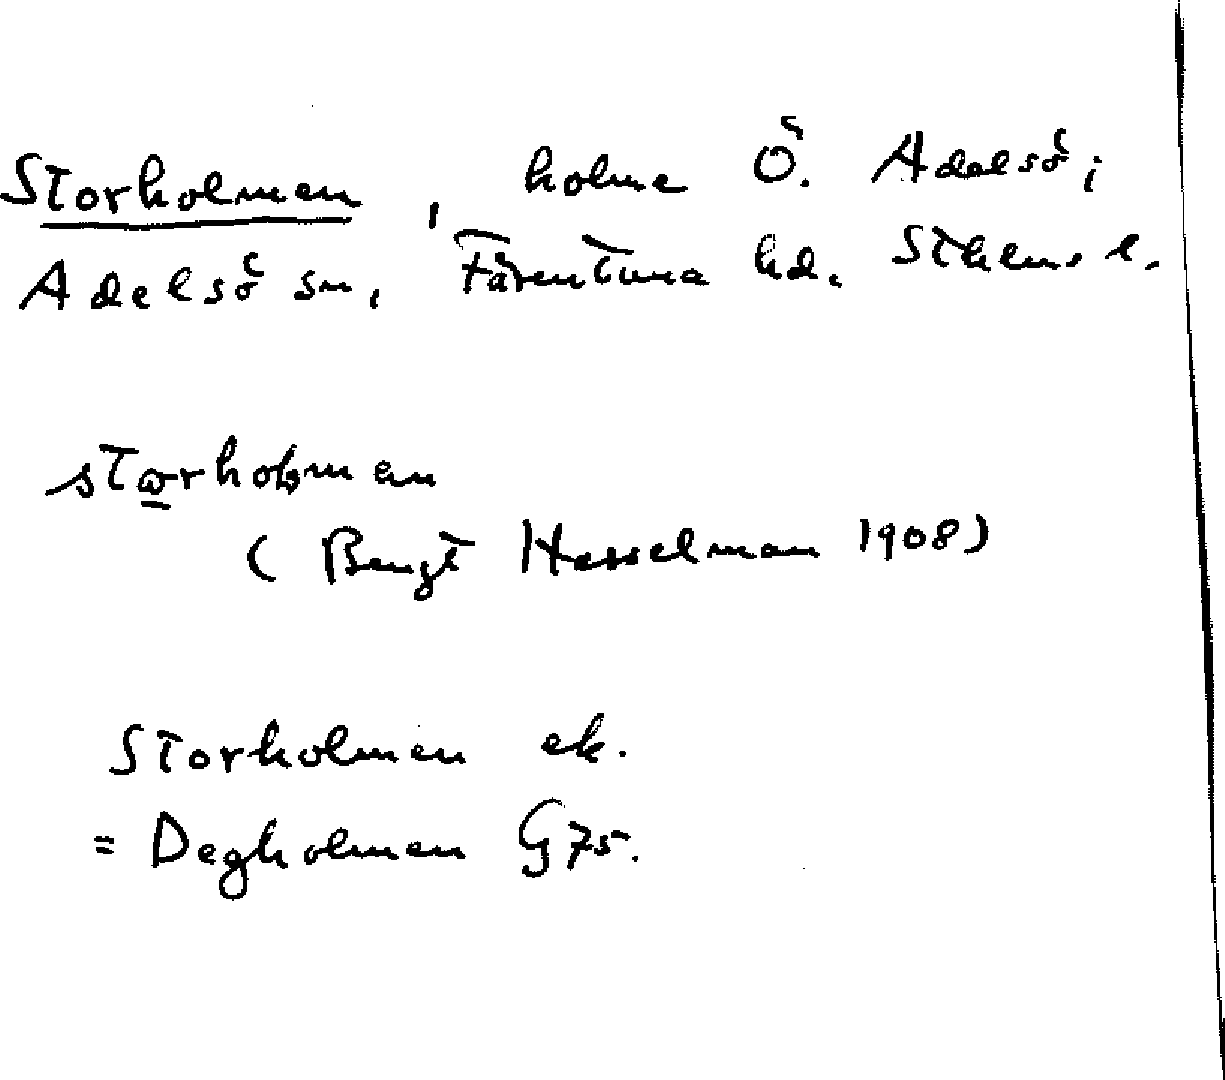 Storholmen, holme Ö. Adelsö i
Adelsö sn, Färentuna hd. Sthlms l.
stωrhoɬmen
(Bengt Hesselman 1908)
Storholmen ek.
= Degholmen G75.